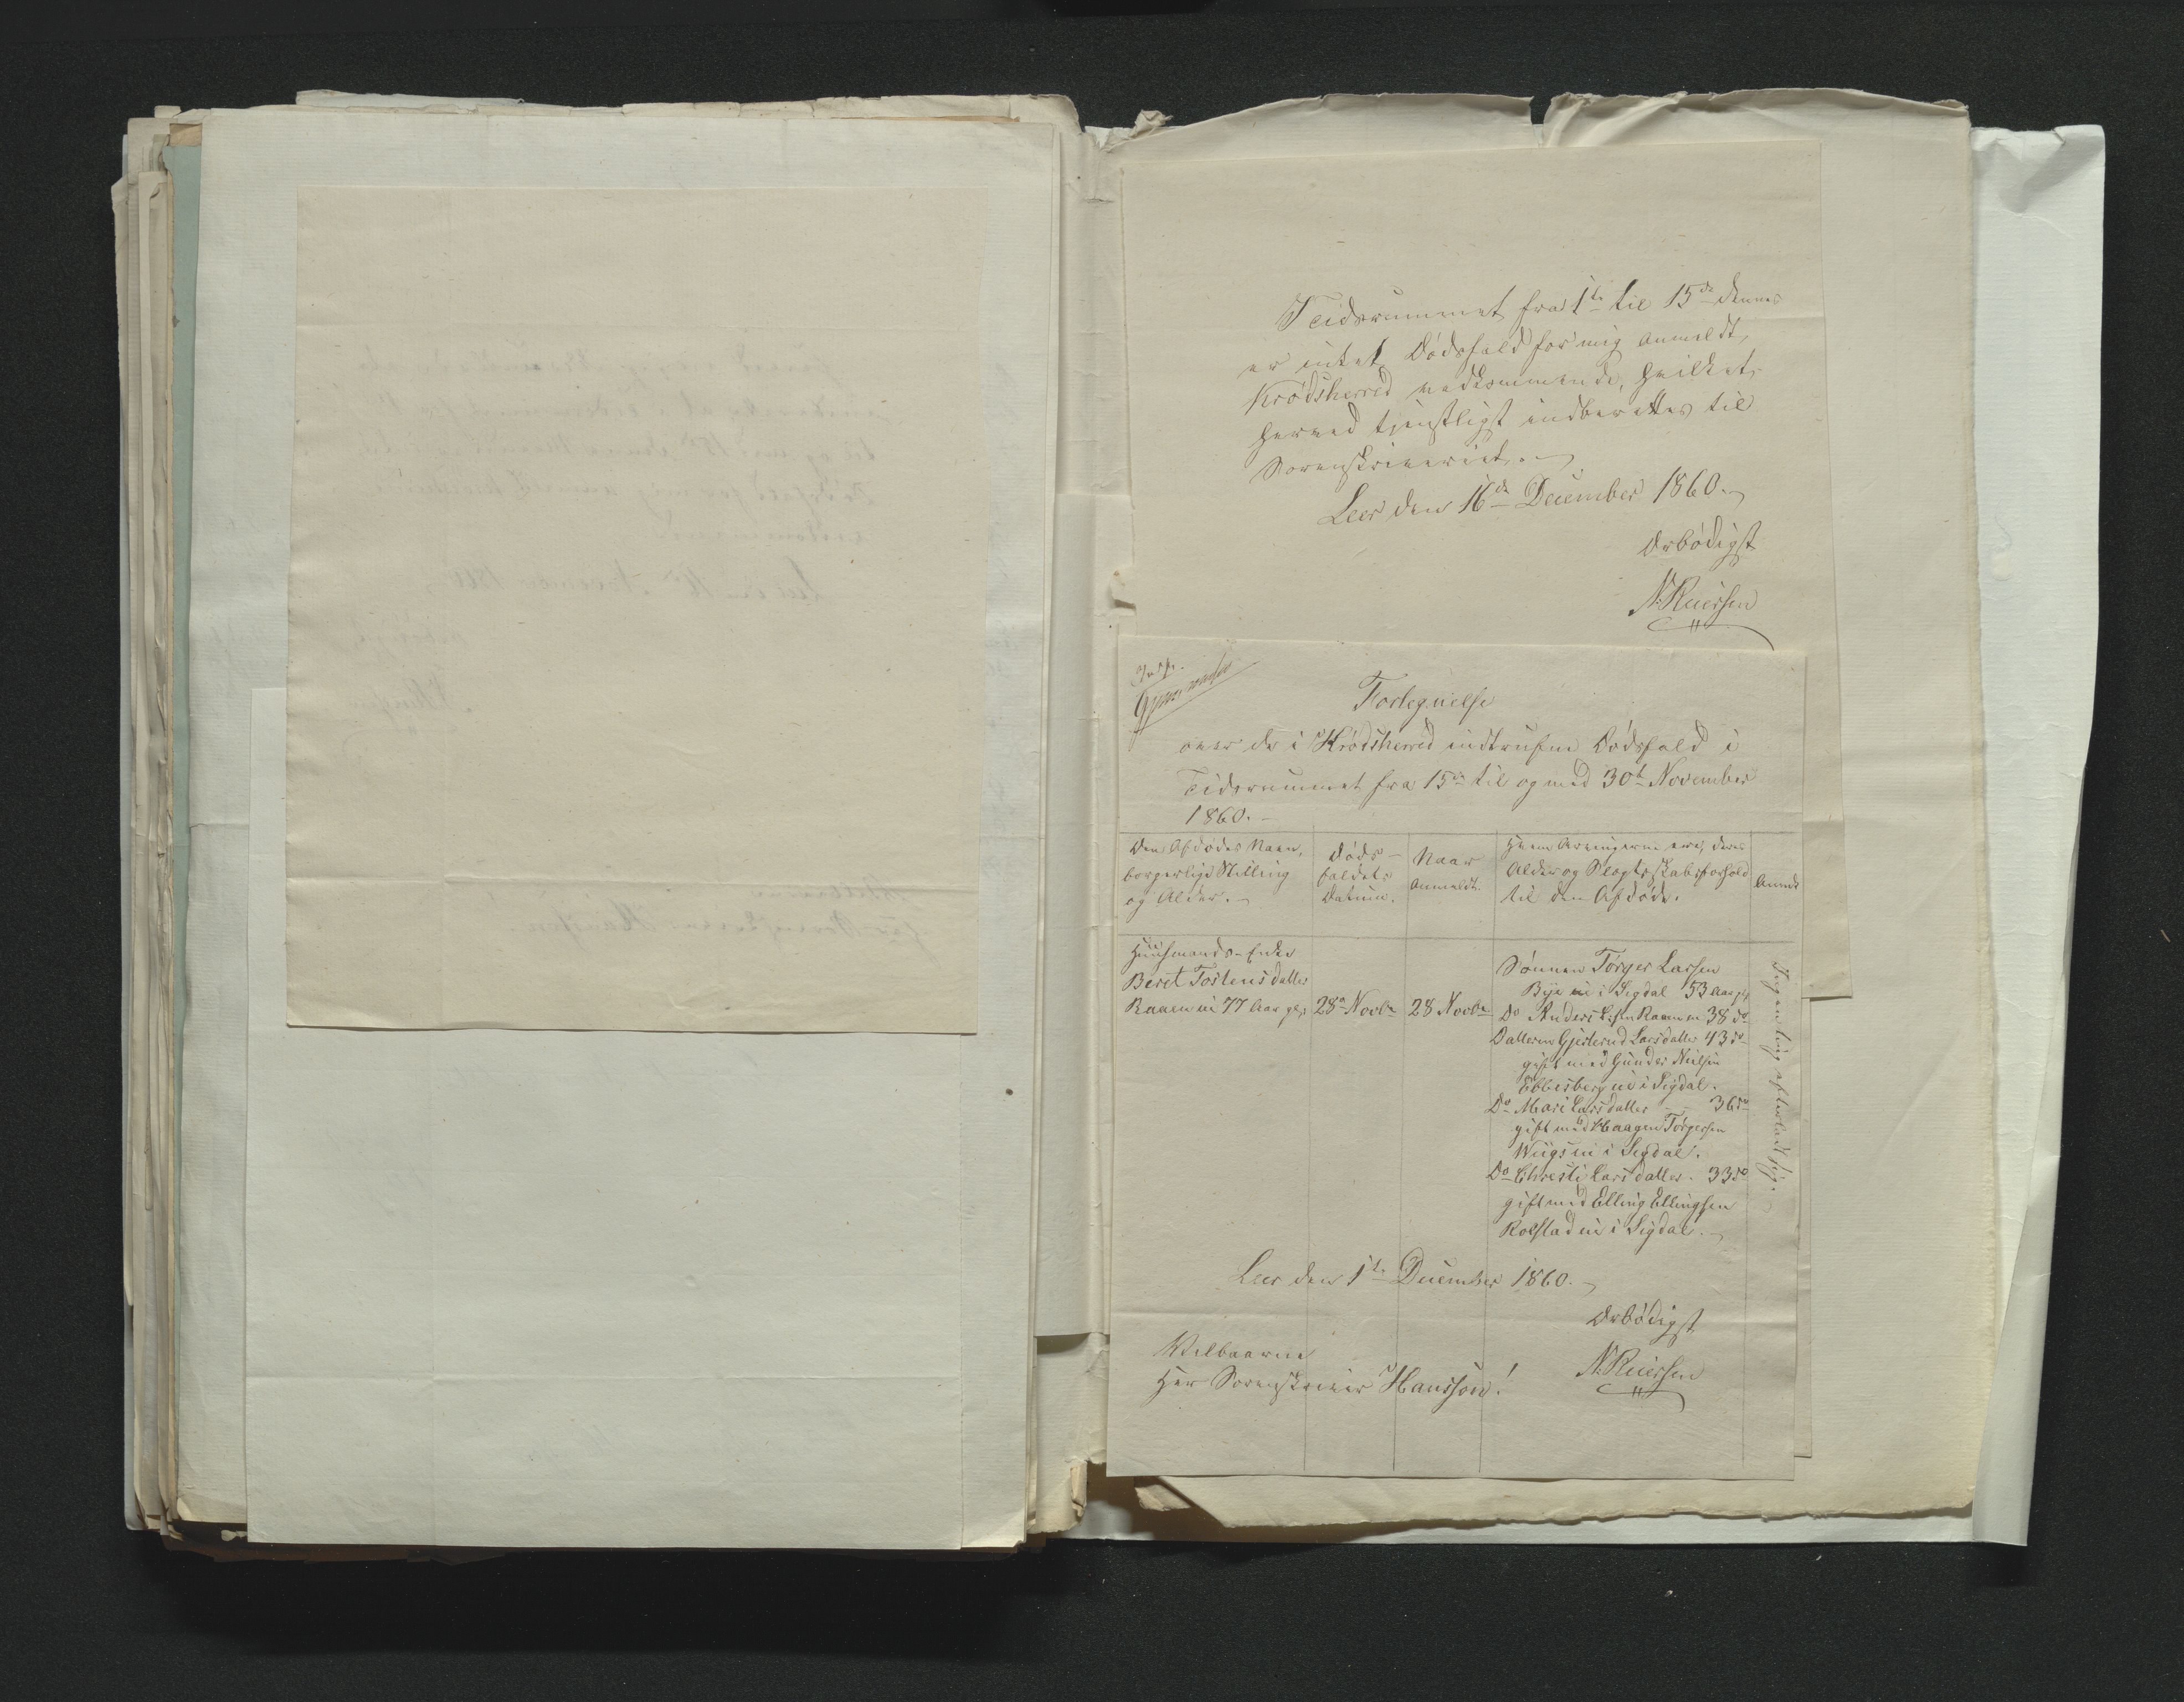 I Tidsrummet fra 1ste til 15de dennes
er intet Dødsfald for mig anmeldt,
Krødsherred vedkommende, hvilket
herved tjenstligst indberettes til
Sorenskriveriet. -
Leer den 16de December 1860. -
Ærbødigst
N. Ruersen
Fortegnelse
over de i Krødsherred indtrufne Dødsfald i
Tidsrummet fra 15de til og med 30te November
1860. -
Den Afdødes Navn,
borgerlige Stilling
og Alder. -
Døds-
faldets
Datum.
Naar
anmeldt.
Hvem Arvingerne ere, deres
Alder og Slægtskabsforhold
til den Afdøde.
Huusmands-Enke
Beret Tostensdatter
Raaen ei 77 Aar gl.
28de Novbr
28 Novbr
Sønnen Torger Larsen
Bye ei i Sigdal 53 Aar gl.
Do Anders Larsen Raaen ei 38 do
Datteren Gjertrud Larsdatter 43 do
gift med Gunder Nielsen
Ebbesberg ei i Sigdal.
Do Mari Larsdatter 36 do
gift med Haagen Torgersen
ei i Sigdal.
Do Christi Larsdatter. 33 do
gift med Elling Ellingsen
Rolstad ei i Sigdal. -
Ingenting efterladt sig.
Leer den 1ste December 1860. -
Ærbødigst
N. Ruersen
Velbaarne
Herr Sorenskriver Hansson!